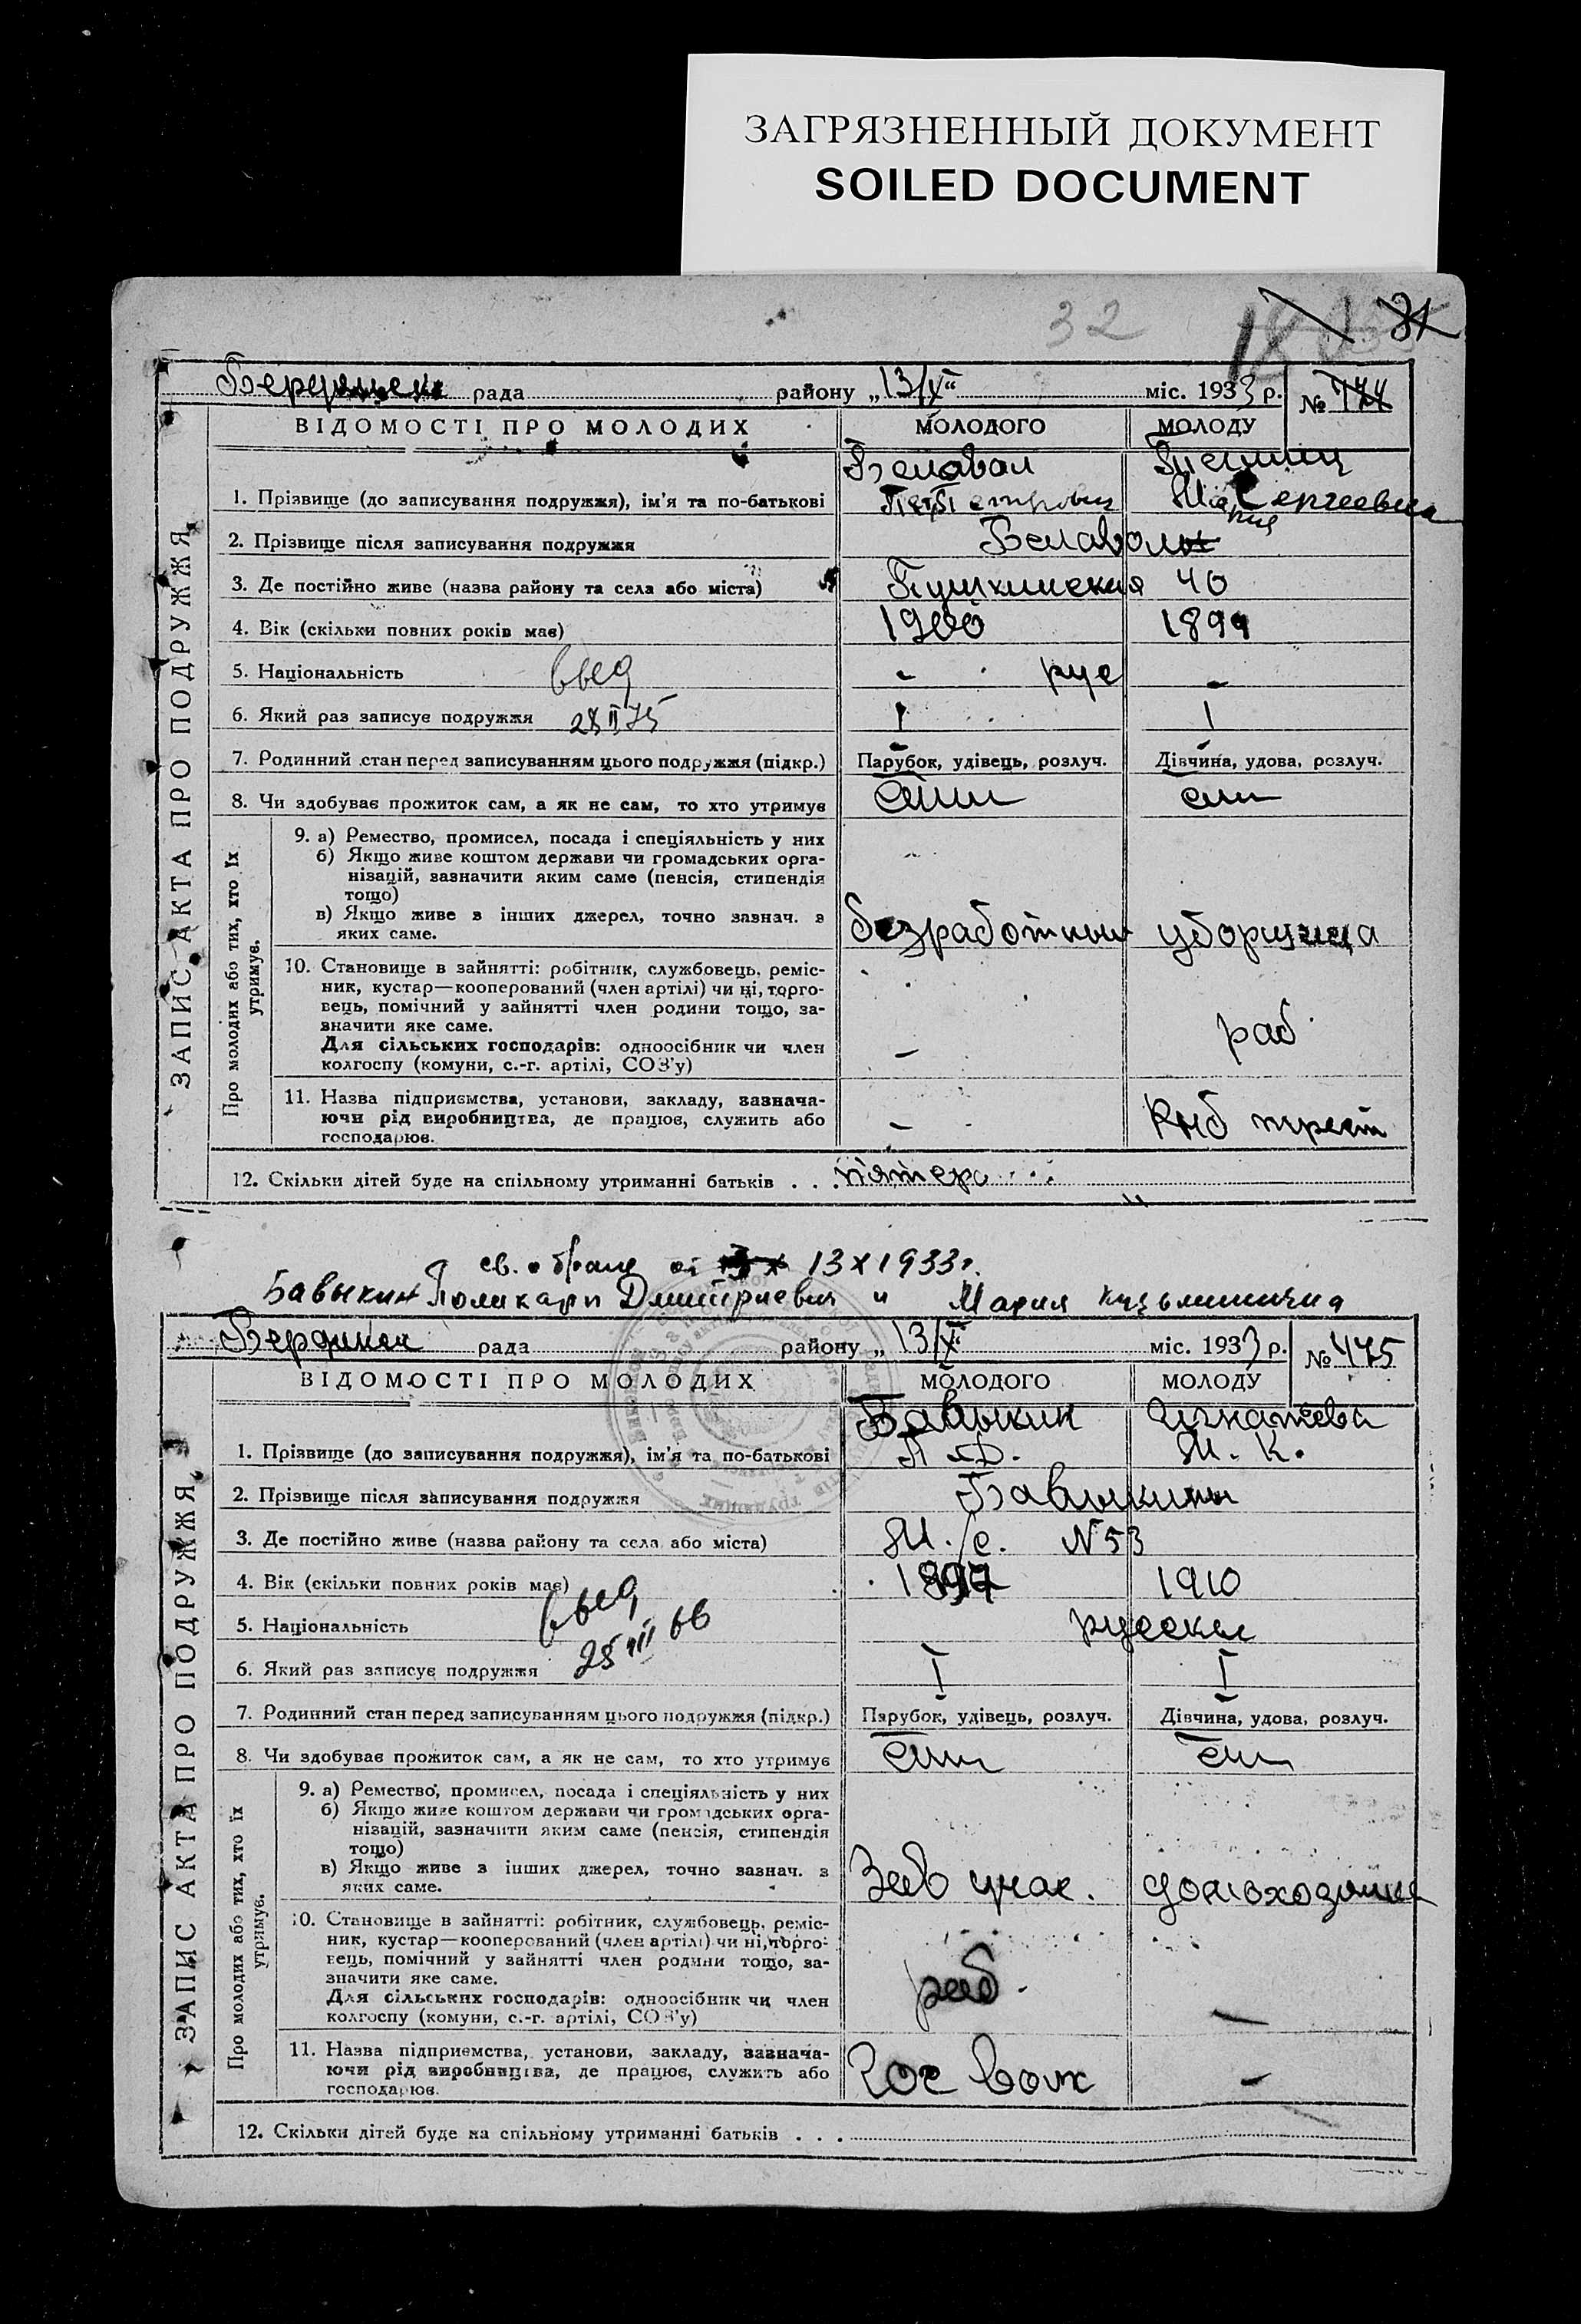 ЗАГРЯЗНЕННЫЙ ДОКУМЕНТ
SOILED DOCUMENT
32 31
рада району „13/X“ міс. 1933 р. №
ВІДОМОСТІ ПРО МОЛОДИХ МОЛОДОГО МОЛОДУ
1. Прізвище (до записування подружжя), ім'я та по-батькові Сергеевна
2. Прізвище після записування подружжя
3. Де постійно живе (назва району та села або міста) Пушкинская 40
4. Вік (скільки повних років має) 1900 1899
5. Національність - рус -
6. Який раз записує подружжя 28 II 75 I I
7. Родинний стан перед записуванням цього подружжя (підкр.) Парубок, удівець, розлуч. Дівчина, удова, розлуч.
8. Чи здобуває прожиток сам, а як не сам, то хто утримує
ЗАПИС АКТА ПРО ПОДРУЖЖЯ
Про молодих або тих, хто їх утримує.
9. а) Ремество, промисел, посада і спеціяльність у них
б) Якщо живе коштом держави чи громадських орга-
нізацій, зазначити яким саме (пенсія, стипендія
тощо)
в) Якщо живе з інших джерел, точно зазнач. з
яких саме. безработный уборщица
10. Становище в зайнятті: робітник, службовець, реміс-
ник, кустар—кооперований (член артілі) чи ні, торго-
вець, помічний у зайнятті член родини тощо, за-
значити яке саме.
Для сільських господарів: одноосібник чи член
колгоспу (комуни, с.-г. артілі, СОЗ'у) - раб.
11. Назва підприємства, установи, закладу, зазнача-
ючи рід виробництва, де працює, служить або
господарює. - трест
12. Скільки дітей буде на спільному утриманні батьків . . . пятеро
св. о браке от 13 X 1933 г.
Бавыкин Поликарп Дмитриевич и Мария Кузьминична
рада району „13/X“ міс. 1933 р. № 475
ВІДОМОСТІ ПРО МОЛОДИХ МОЛОДОГО МОЛОДУ
1. Прізвище (до записування подружжя), ім'я та по-батькові Бавыкин П. Д. Игнатева М. К.
2. Прізвище після записування подружжя Бавыкины
3. Де постійно живе (назва району та села або міста) N 53
4. Вік (скільки повних років має) 1910
5. Національність русские
6. Який раз записує подружжя I I
7. Родинний стан перед записуванням цього подружжя (підкр.) Парубок, удівець, розлуч. Дівчина, удова, розлуч.
8. Чи здобуває прожиток сам, а як не сам, то хто утримує
ЗАПИС АКТА ПРО ПОДРУЖЖЯ
Про молодих або тих, хто їх утримує.
9. а) Ремество, промисел, посада і спеціяльність у них
б) Якщо живе коштом держави чи громадських орга-
нізацій, зазначити яким саме (пенсія, стипендія
тощо)
в) Якщо живе з інших джерел, точно зазнач. з
яких саме.
10. Становище в зайнятті: робітник, службовець, реміс-
ник, кустар—кооперований (член артілі) чи ні, торго-
вець, помічний у зайнятті член родини тощо, за-
значити яке саме.
Для сільських господарів: одноосібник чи член
колгоспу (комуни, с.-г. артілі, СОЗ'у) раб. -
11. Назва підприємства, установи, закладу, зазнача-
ючи рід виробництва, де працює, служить або
господарює. -
12. Скільки дітей буде на спільному утриманні батьків . . .